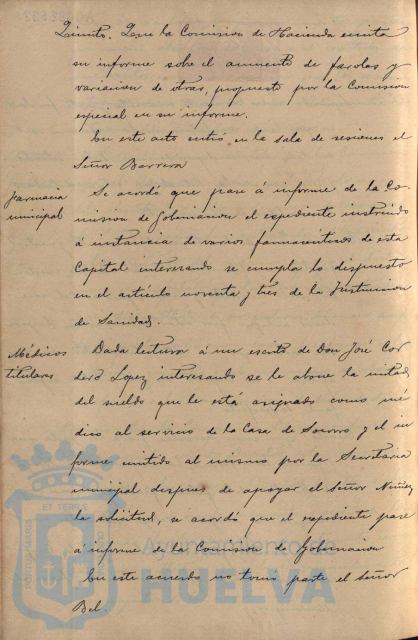 Quinto. Que la Comision de Hacienda emita
su informe sobre el aumento de farolas y
variacion de otras, propuesto por la Comision
especial en su informe.
En este acto entró en la sala de sesiones el
Señor Barrera
Farmacia
municipal
Se acordó que pase á informe de la Co-
mision de Gobernacion el expediente instruido
á instancia de varios farmacéuticos de esta
Capital interesando se cumpla lo dispuesto
en el artículo noventa y tres de la Instruccion
de Sanidad.
Médicos
titulares
Dada lectura á un escrito de Don José Cor
dero Lopez interesando se le abone la mitad
del sueldo que le está asignado como mé
dico al servicio de la Casa de Socorro y el in
forme emitido al mismo por la Secretaria
municipal despues de apoyar el Señor Nuñez
la solicitud, se acordó que el expediente pase
á informe de la Comision de Gobernacion
En este acuerdo no tomó parte el señor
Bel.
PORTUS MARIS
ET TERRE
Ayuntamiento de
HUELVA